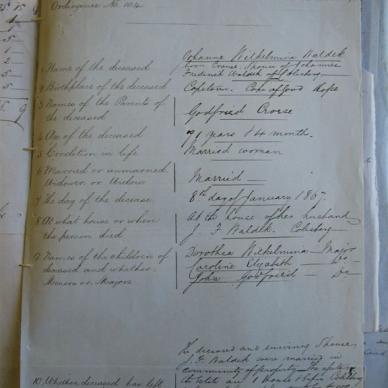 Ordinance No. 104
Johanna Wilhelmina Waldek
born Crorse Spouse of Johannes
Frederick Waldek of Colesberg
1 Name of the deceased
2 Birthplace of the deceased Capetown. Cape of Good Hope
3 Names of the Parents of
the deceased Godfried Crorse
4 Age of the deceased years & 4 months.
5 Condition in life Married woman
6 Married or unmarried
Widower or Widow Married
7 The day of the decease 8th day of January 186
8 At what house or where
the person died At the house of her husband
J. F. Waldek. Colesberg
9 Names of the children of
deceased and whether
Minors or Majors
Dorothea Wilhelmina — Major
Caroline Elizabeth — Do —
John Godfried — Do —
The deceased and surviving Spouse
J. F. Waldek were married in
community of property.
10. Whether deceased has left